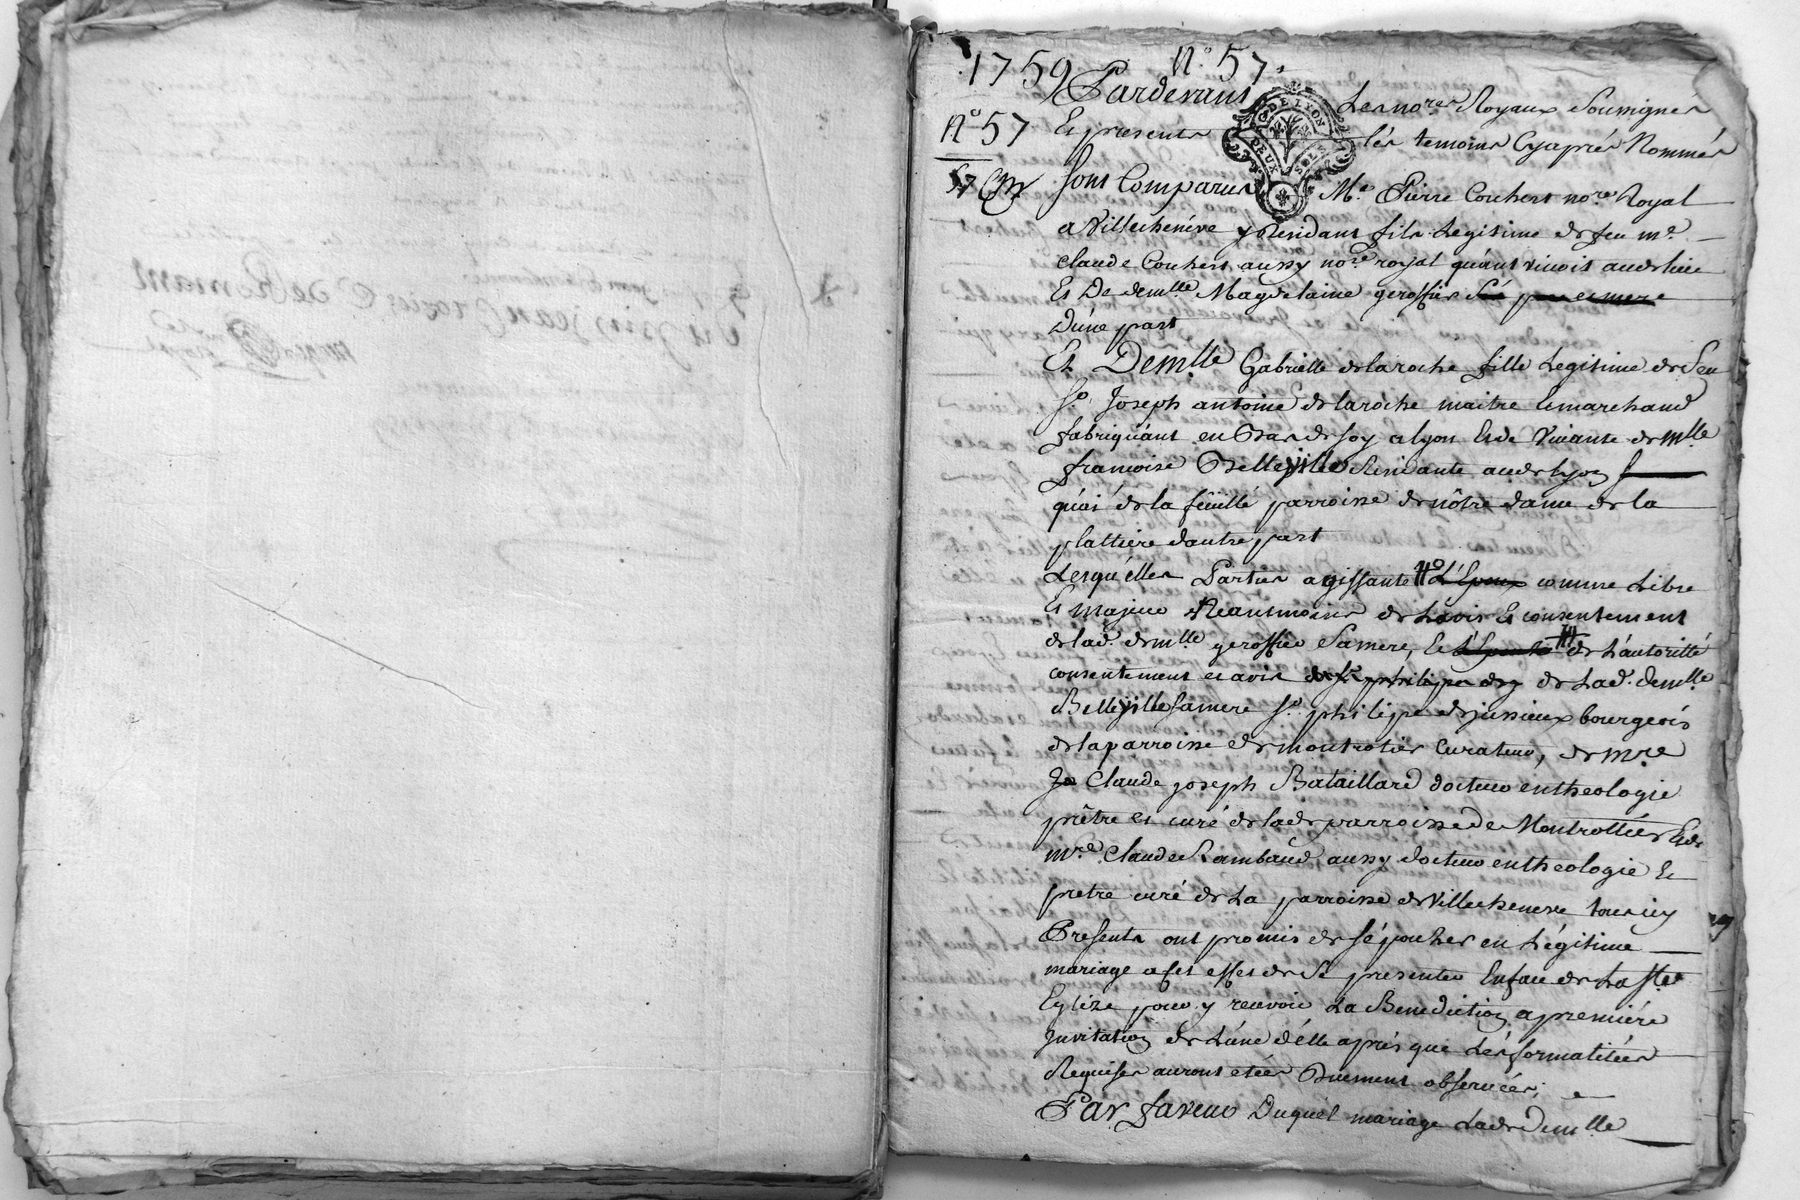 1759 n.° 57.
n.° 57
57
Pardevant Les no.res Royaux Soussignés
Et presents lés temoins Cyaprés Nommés
G. DE LYON
DEUX SOLS
sont Comparus M.e Pierre Couhert no.re Royal
a Villechenéve y Residant fils Legitime de feu m.e
claude Couhert aussy no.re royal quánt vivoit audt lieu
Et De demlle Magdelaine gerossier
Dúne part
Et Demlle Gabrielle delaroche fille Legitime de feu
sr. Joseph antoine de laroche maitre Et marchand
fabriquánt en Bas de soy a lyon Et de Vivante demlle
francoise Belleville Residante audt lyon
quái de la feüille parroisse de nôtre dame de la
plattiere dautre part
Lesquélles Parties agissants L'Epoux comme Libre
Et majeur Neantmoins de Lavis Et consentement
de lad. demlle gerossier Samere, Et L'Epouse de Láutoritté
consentement et avis de sr. philipe de lad. demlle
Belleville samere sr. philippe de jussieux bourgeois
de laparroisse de montrotier Curateur, de mre
Claude joseph Bataillard docteur entheologie
prêtre et curé de lade parroisse de Montrottier Et de
mre Claude Rambaud aussy docteur entheologie Et
pretre curé de La parroisse de Villecheneve tous icy
Presents ont promis de sépouser en Légitime
mariage a cet effet de Se presenter En face de La ste
Eglize pour y recevoir La Benediction a premiére
Invitation de Lúne d'élle aprés que Les formalitées
Requises auront etées Duement observées;
Par faveur Duquél mariage Lade Demlle